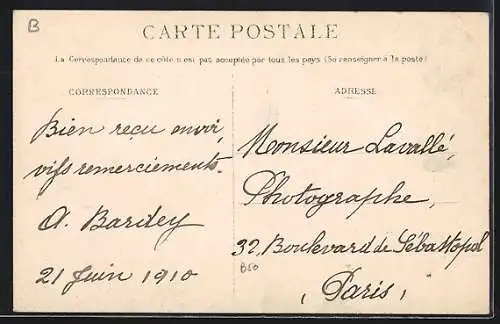 B
CARTE POSTALE
La Correspondance de ce côté n'est pas acceptée par tous les pays (Se renseigner à la poste)
CORRESPONDANCE
Bien reçu envoi,
vifs remerciements.
A. Bardey
21 Juin 1910
ADRESSE
Monsieur Lavallé,
Photographe,
32, Boulevard de Sébastopol
B50
Paris,